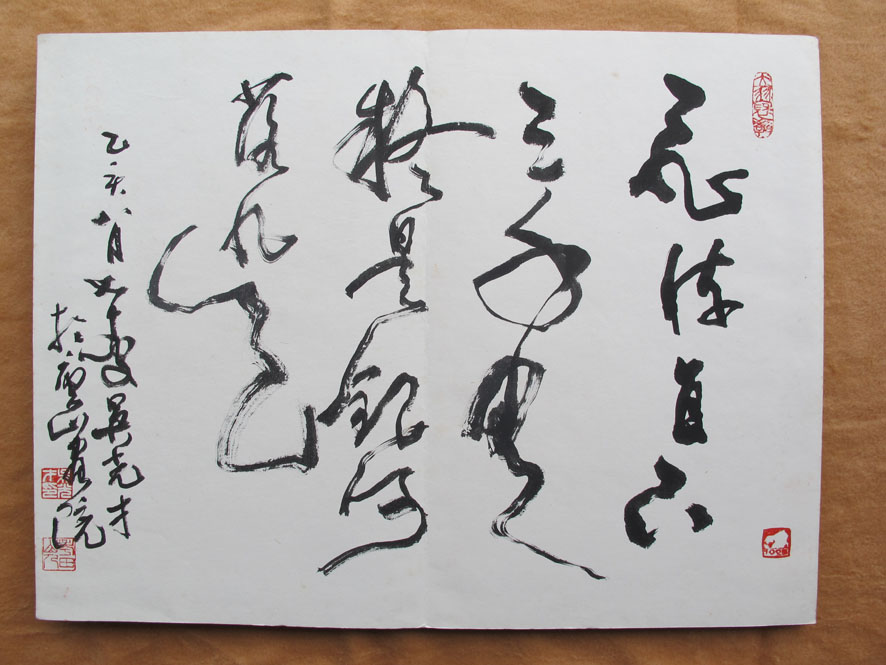 飛流直下
三千尺
疑是銀河
落九天
乙亥八月
吳堯才
於山畫院